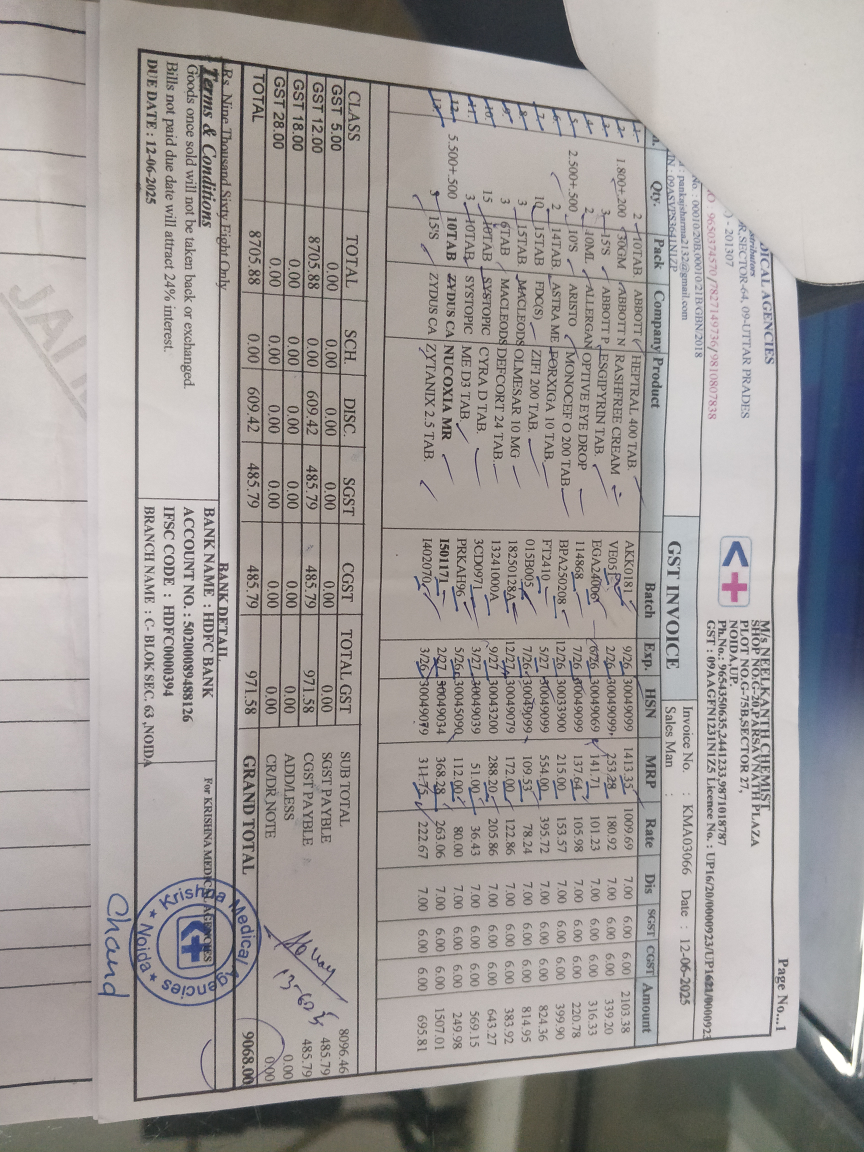 Page No...1
DICAL AGENCIES
stributors
R,SECTOR-64, 09-UTTAR PRADES
- 201307
O : 9650374570 /7827149736/9810807838
No. : 00010/20B,00010/21B/GBN/2018
: pankajsharma2132@gmail.com
IN : 09ASVPS3641N1ZP
M/s NEELKANTH CHEMIST
SHOP NO.G-20,PARSAVNATH PLAZA
PLOT NO.G-75B,SECTOR 27,
NOIDA,UP.
Ph.No.: 9654350635,2441233,9871018787
GST : 09AAGFN1231N1Z5 Licence No. : UP16/20/0000923/UP1621/0000923
GST INVOICE
Invoice No. : KMA03066 Date : 12-06-2025
Sales Man :
Qty. Pack Company Product Batch Exp. HSN MRP Rate Dis SGST CGST Amount
1. 2 10TAB ABBOTT HEPTRAL 400 TAB. AKK0181 9/26 30049099 1413.35 1009.69 7.00 6.00 6.00 2103.38
2. 1.800+.200 30GM ABBOTT N RASHFREE CREAM 2/26 30049099 253.28 180.92 7.00 6.00 6.00 339.20
3. 3 15'S ABBOTT P ESGIPYRIN TAB. EGA24006 6/26 30049069 141.71 101.23 7.00 6.00 6.00 316.33
4. 2 10ML ALLERGAN OPTIVE EYE DROP 114868 7/26 30049099 137.64 105.98 7.00 6.00 6.00 220.78
5. 2.500+.500 10'S ARISTO MONOCEF O 200 TAB BPA250208 12/26 30033900 215.00 153.57 7.00 6.00 6.00 399.90
6. 2 14TAB ASTRA ME FORXIGA 10 TAB. FT2410 5/27 30049099 554.00 395.72 7.00 6.00 6.00 824.36
7. 10 15TAB FDC(S) ZIFI 200 TAB. 015B005 7/26 30049099 109.53 78.24 7.00 6.00 6.00 814.95
8. 3 15TAB MACLEODS OLMESAR 10 MG 18250128A 12/27 30049079 172.00 122.86 7.00 6.00 6.00 383.92
9. 3 6TAB MACLEODS DEFCORT 24 TAB. 13241000A 9/27 30043200 288.20 205.86 7.00 6.00 6.00 643.27
10. 15 10TAB SYSTOPIC CYRA D TAB. 3CD0971 3/27 30049039 51.00 36.43 7.00 6.00 6.00 569.15
11. 3 10TAB SYSTOPIC ME D3 TAB. PRKAH96 5/26 30045090 112.00 80.00 7.00 6.00 6.00 249.98
12. 5.500+.500 10TAB ZYDUS CA NUCOXIA MR 1501171 2/27 30049034 368.28 263.06 7.00 6.00 6.00 1507.01
13. 3 15'S ZYDUS CA ZYTANIX 2.5 TAB. 1402070 3/26 30049079 311.75 222.67 7.00 6.00 6.00 695.81
CLASS TOTAL SCH. DISC. SGST CGST TOTAL GST
GST 5.00 0.00 0.00 0.00 0.00 0.00 0.00
GST 12.00 8705.88 0.00 609.42 485.79 485.79 971.58
GST 18.00 0.00 0.00 0.00 0.00 0.00 0.00
GST 28.00 0.00 0.00 0.00 0.00 0.00 0.00
TOTAL 8705.88 0.00 609.42 485.79 485.79 971.58
SUB TOTAL 8096.46
SGST PAYBLE 485.79
CGST PAYBLE 485.79
ADD/LESS 0.00
CR/DR NOTE 0.00
GRAND TOTAL 9068.00
Rs. Nine Thousand Sixty Eight Only
Terms & Conditions
Goods once sold will not be taken back or exchanged.
Bills not paid due date will attract 24% interest.
DUE DATE : 12-06-2025
BANK DETAIL
BANK NAME : HDFC BANK
ACCOUNT NO. : 50200089488126
IFSC CODE : HDFC0000394
BRANCH NAME : C- BLOK SEC. 63 ,NOIDA
For KRISHNA MEDICAL AGENCIES
Krishna Medical Agencies
Noida
Chand